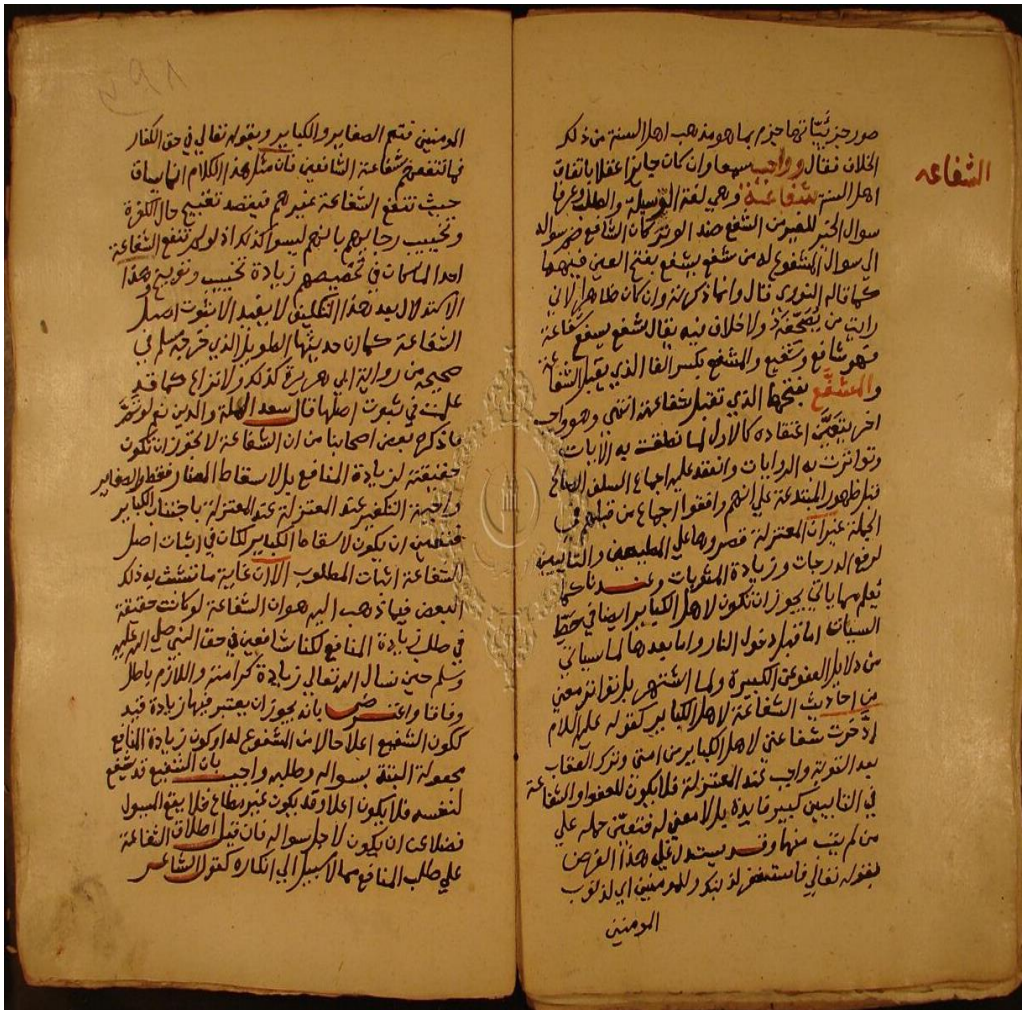 الشفاعه
صور جزئياتها جزم بما هو مذهب اهل السنة من ذلك
الخلاف فقال وواجب سمعا وان كان جايزا عقلا باتفاق
اهل السنة شفاعته وهي لغة الوسيلة والطلب وعرفا
سوال الخير للغير من الشفع ضد الوتر كان الشافع ضم سواله
الي سوال المشفوع له من شفع يشفع بفتح العين فيهما
كما قاله النووي قال وانما ذكرته وان كان ظاهرا لاني
رايت من يصحفه ولا خلاف فيه يقال شفع يشفع شفاعة
فهو شافع وشفيع والمشفع بكسر الفا الذي يقبل الشفاعة
والمشفَّع بفتحها الذي تقبل شفاعته انتهى وهو واجب
اخر يتعين اعتقاده كالاول لما نطقت به الايات
وتواترت به الروايات وانعقد عليه اجماع السلف الصالح
قبل ظهور المبتدعة علي انهم وافقوا اجماع من قبلهم في
الجملة غير ان المعتزلة قصروها علي المطيعين والتايبين
لرفع الدرجات وزيادة المثوبات وعندنا كما
يعلم مما ياتي يجوز ان تكون لاهل الكباير ايضا في حط
السيات اما قبل دخول النار واما بعدها لما سياتي
من دلايل العفو عن الكبيرة ولما اشتهر بل تواتر معني
من احاديث الشفاعة لاهل الكباير كقوله عليه السلام
ادَّخرت شفاعتي لاهل الكباير من امتي وترك العقاب
بعد التوبة واجب عند المعتزلة فلا يكون للعفو والشفاعة
في التايبين كبير فايدة بل لا معني له فتعين حمله علي
من لم يتب منها وقد يستدل علي هذا الغرض
بقوله تعالي فاستغفر لذنبك وللمومنين اي لذنوب
المومنين
المومنين فتعم الصغاير والكباير وبقوله تعالي في حق الكفار
فما تنفعهم شفاعة الشافعين فان مثل هذا الكلام انما يساق
حيث تنفع الشفاعة غيرهم فيقصد تقبيح حال الكفرة
وتخييب رجايهم بانهم ليسوا كذلك اذ لو لم تنفع الشفاعة
احدا لما كان في تخصيصهم زيادة تخييب وتوبيخ وهذا
الاستدلال بعد هذا التكليف لا يفيد الا ثبوت اصل
الشفاعة كما ان حديثها الطويل الذي خرجه مسلم في
صحيحه من رواية ابي هريرة كذلك ولا نزاع كما قد
علمت في ثبوت اصلها قال سعد الملة والدين نعم لو تم
ما ذكره بعض اصحابنا من ان الشفاعة لا يجوز ان تكون
حقيقة لزيادة المنافع بل لاسقاط المضار فقط والصغاير
واجبة التكفير عند المعتزلة باجتناب الكباير
فتعين ان يكون لاسقاط الكباير لكان في اثبات اصل
الشفاعة اثبات المطلوب الا ان غاية ما تشبث به ذلك
البعض فيما ذهب اليه هو ان الشفاعة لو كانت حقيقة
في طلب زيادة المنافع لكنا شافعين في حق النبي صلي الله عليه
وسلم حين نسال الله تعالي زيادة كرامته واللازم باطل
وفاقا واعترض بانه يجوز ان يعتبر فيها زيادة قيد
ككون الشفيع اعلا حالا من المشفوع له او كون زيادة المنافع
محصولة البتة بسواله وطلبه واجيب بان الشفيع قد يشفع
لنفسه فلا يكون اعلا وقد يكون غير مطاع فلا يقع المسول
فضلا عن ان يكون لاجل سواله فان قيل اطلاق الشفاعة
علي طلب المنافع مما لا سبيل الي انكاره كقول الشاعر